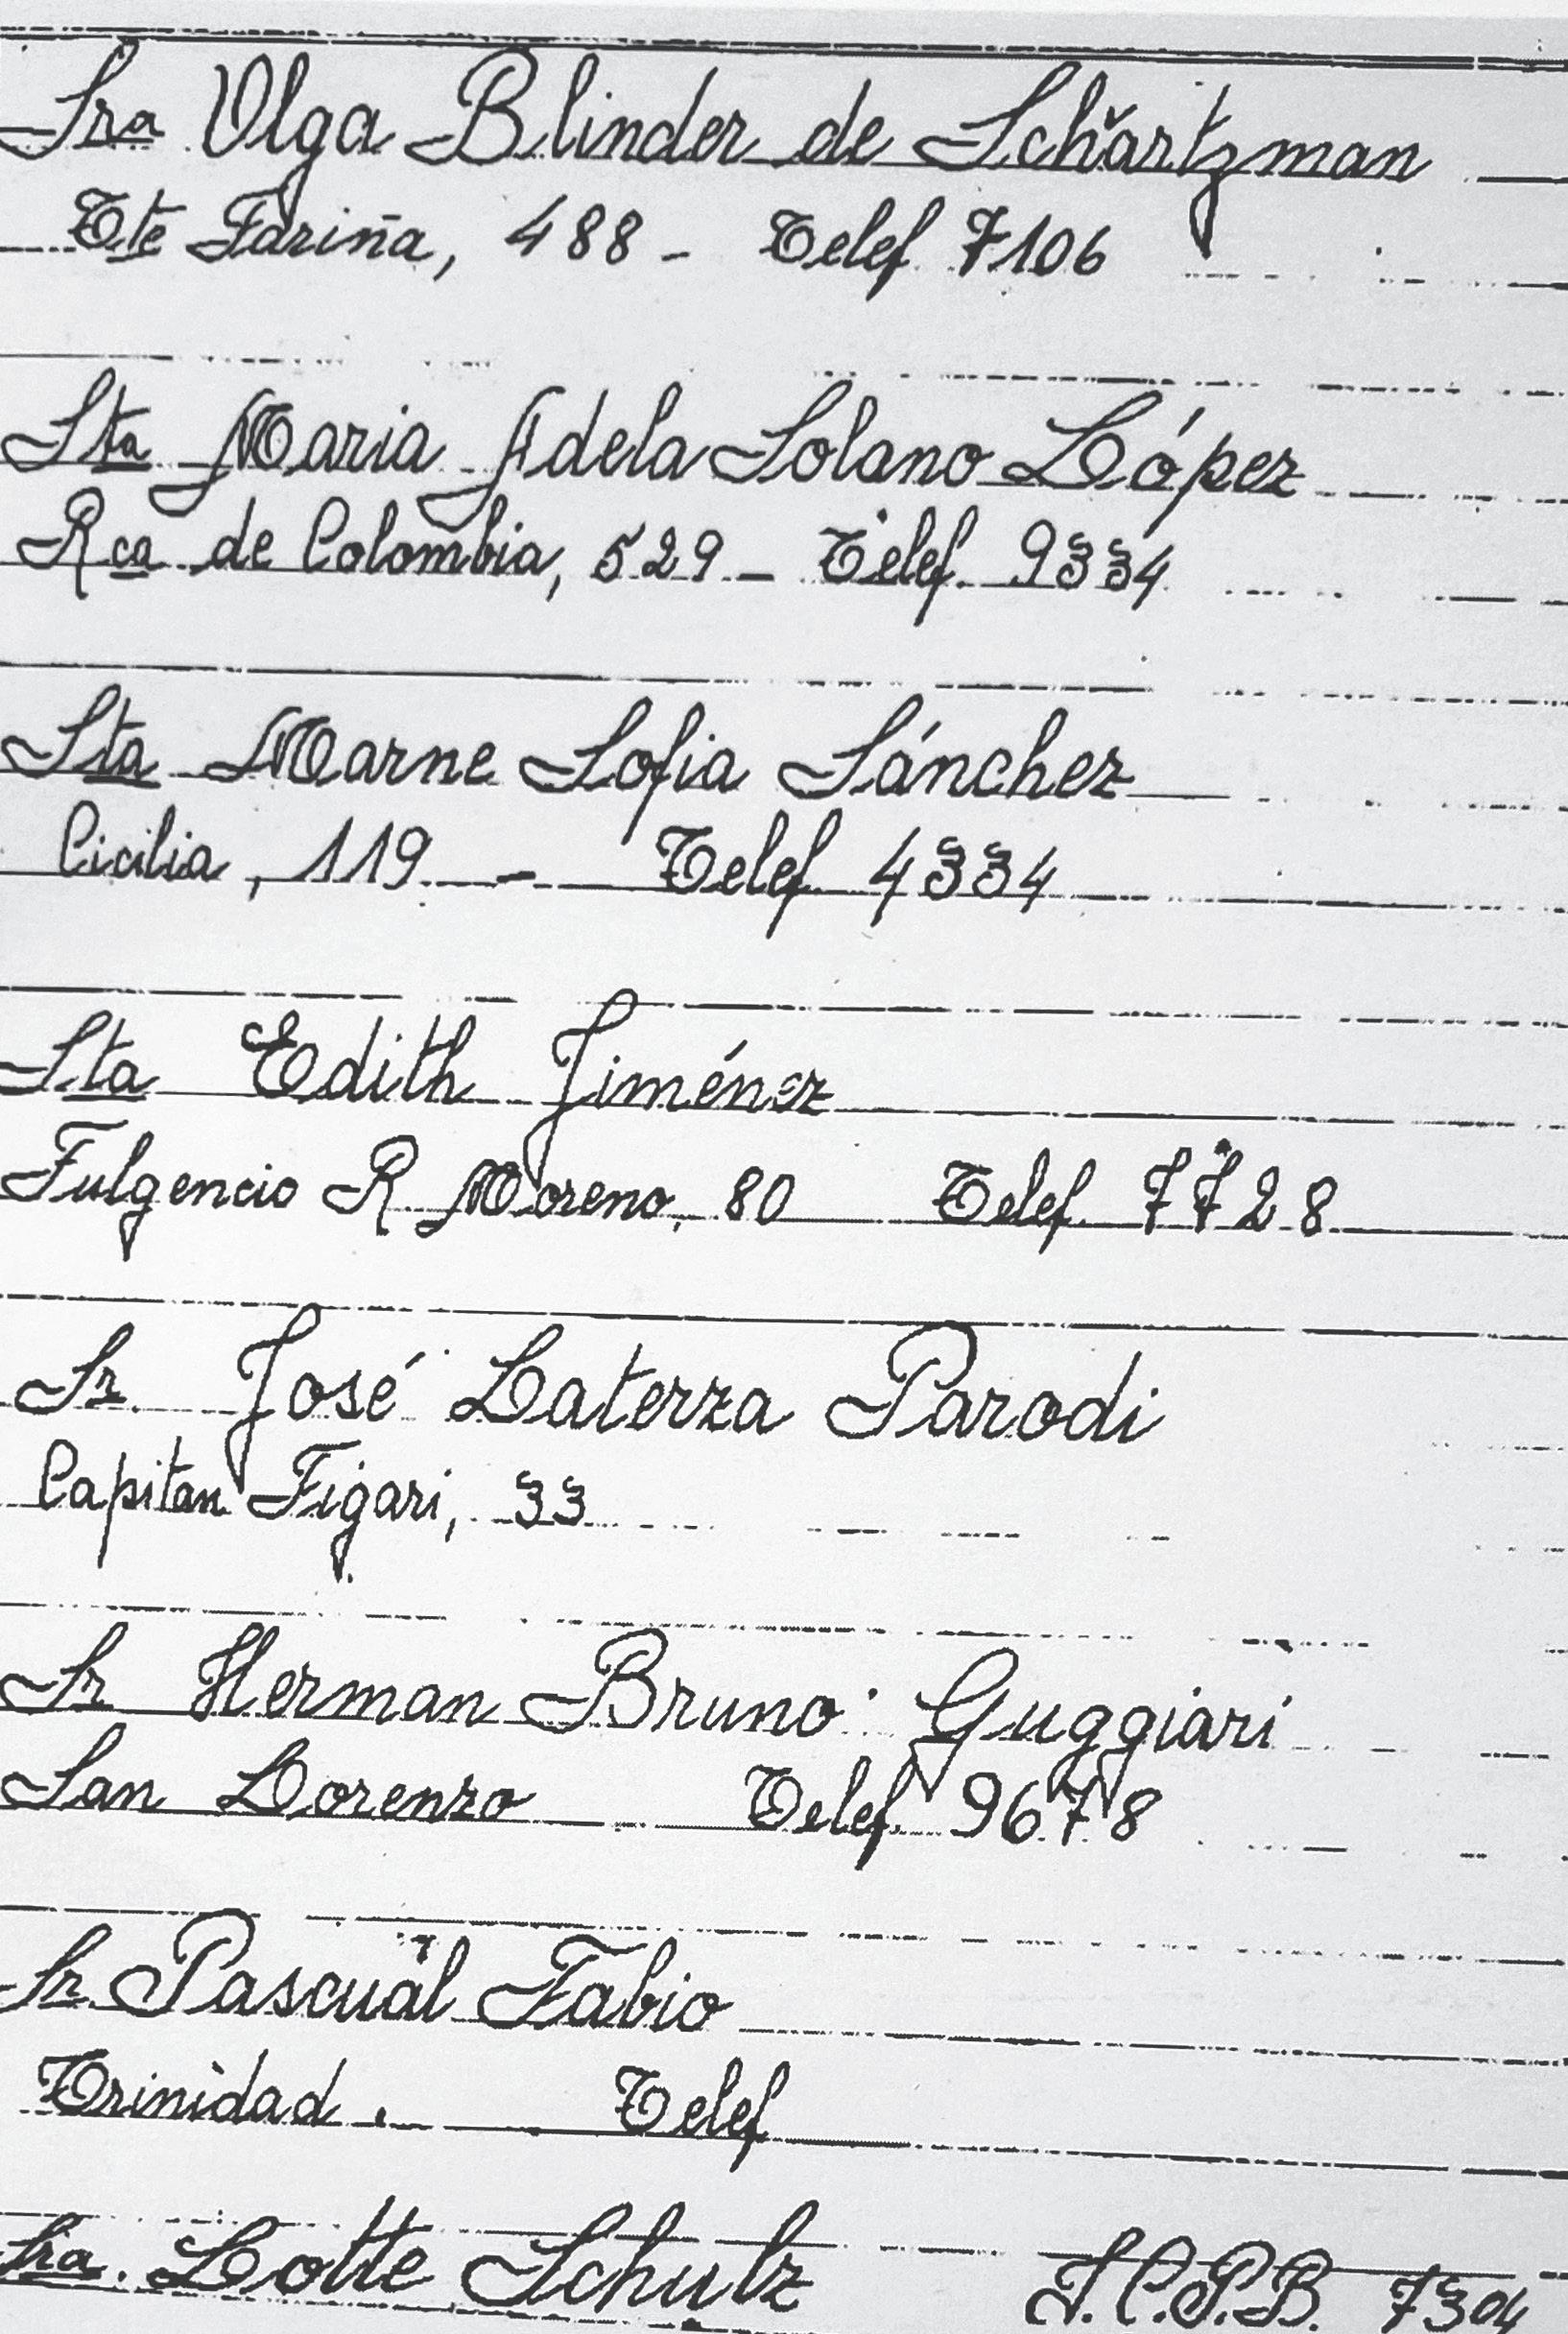 Sra Olga Blinder de Schartzman
Tte Fariña, 488 - Telef 7106
Sta Maria Adela Solano López
Rca de Colombia, 529 - Telef. 9334
Sta Marne Sofia Sánchez
Cicilia, 119 - Telef 4334
Sta Edith Jiménez
Fulgencio R Moreno, 80 Telef. 7728
Sr. José Laterza Parodi
Capitan Figari, 33
Sr Herman Bruno Guggiari
San Lorenzo Telef. 9678
Sr. Pascual Fabio
Trinidad. Telef
Sra. Lotte Schulz J.C.P.B. 7304